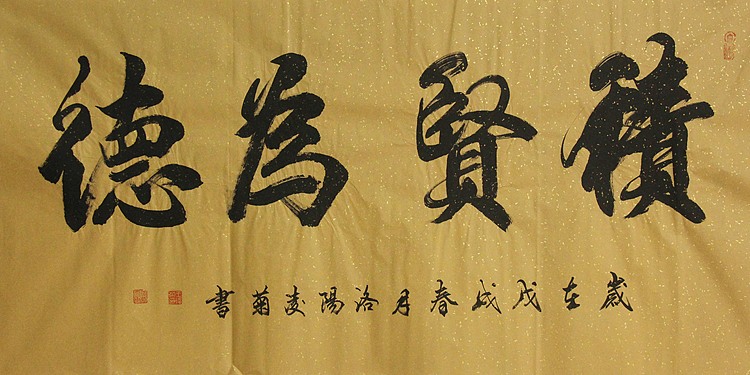 積賢為德
歲在戊戌春月洛陽菊書